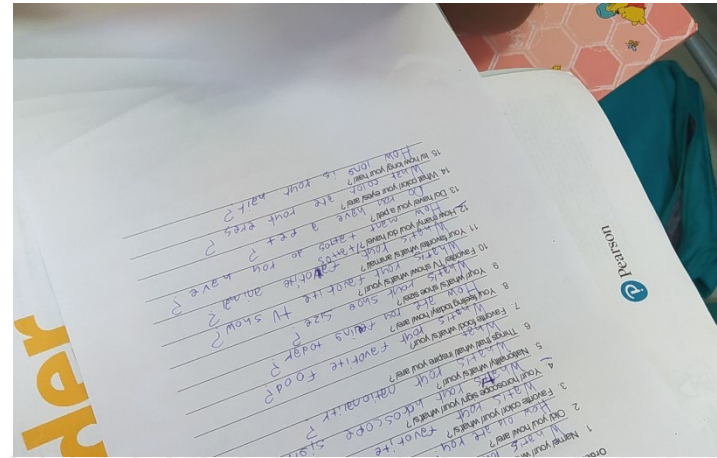 1 Name/ your/ what's
What's
2 Old/ you/ how/ are?
How old are you?
3 Favorite color/ your/ what's?
What's your favorite
4 Your/ horoscope sign/ what's?
What's your horoscope sign
5 Nationality/ what's/ your?
What's your nationality?
6 Things that/ what/ inspire you/ are?
What
7. Favorite food/ what's/ your?
What's your favorite food?
8 You/ feeling today/ how/ are?
How are you feeling today?
9 Your/ what's/ shoe size?
What's your shoe size?
10 Favorite/ TV show/ what's/ your?
What's your favorite TV show?
11 Your/ favorite/ what's/ animal?
What's your favorite animal?
12 How many/ do/ you/ have/ ?/ tattoos
How many tattoos do you have?
13 Do/ have/ you/ a pet?
Do you have a pet?
14 What color/ your/ eyes/ are?
What color are your eyes?
15 Is/ how long/ your/ hair?
How long is your hair?
Pearson
der